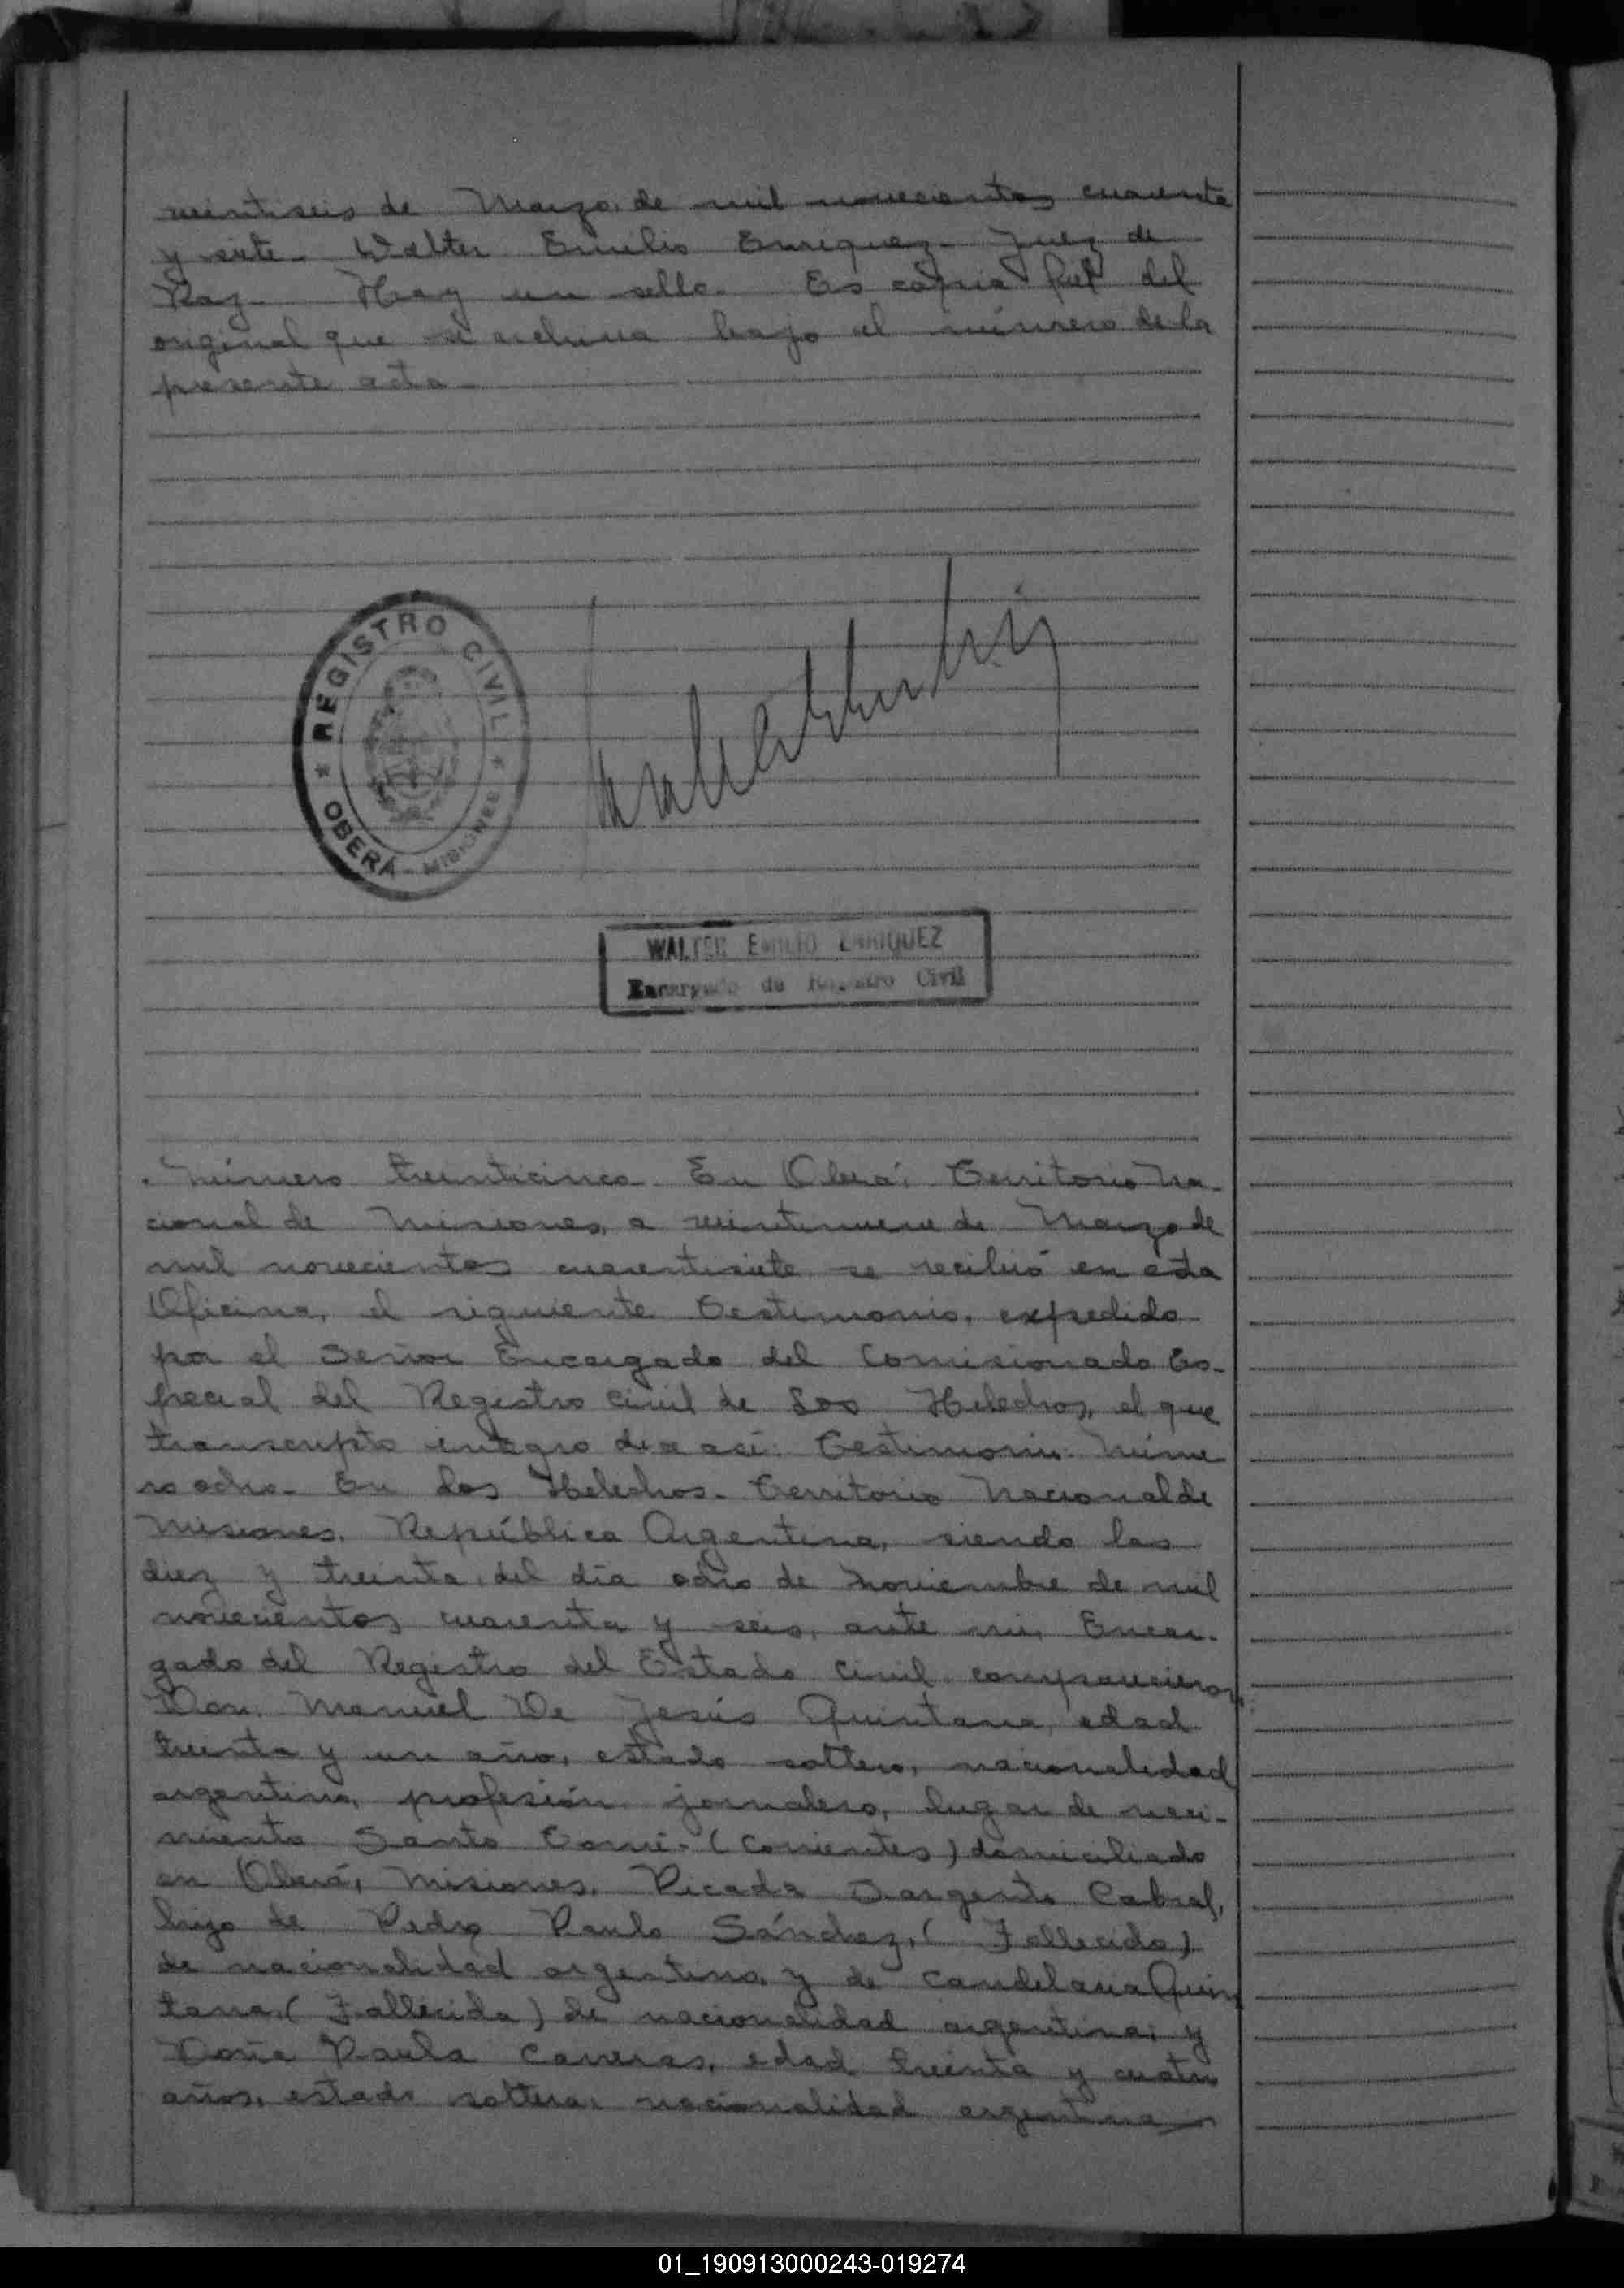 veintiseis de Marzo, de mil novecientos cuarenta
y siete. Walter Emilio Enriquez. Juez de
Paz. Hay un sello. Es copia fiel del
original que se archiva bajo el número de la
presente acta.
REGISTRO CIVIL
OBERÁ - MISIONES
WALTER EMILIO ENRIQUEZ
Encargado de Registro Civil
Número treinticinco. En Oberá, Territorio Na-
cional de Misiones, a veintinueve de Marzo de
mil novecientos cuarentisiete se recibió en esta
Oficina, el siguiente Testimonio, expedido
por el Señor Encargado del Comisionado Es-
pecial del Registro Civil de Los Helechos, el que
transcripto integro dice asi: Testimonio: Núme
ro ocho. En Los Helechos. Territorio Nacional de
Misiones. República Argentina, siendo las
diez y treinta, del día ocho de Noviembre de mil
novecientos cuarenta y seis, ante mi, Encar-
gado del Registro del Estado Civil comparecieron,
Don Manuel De Jesús Quintana, edad
treinta y un año, estado soltero, nacionalidad
argentina, profesión jornalero, lugar de naci-
miento Santo Tomé. (Corrientes) domiciliado
en Oberá, Misiones. Picada Sargento Cabral,
hijo de Pedro Paulo Sánchez, (Fallecido)
de nacionalidad argentino y de Candelaria Quin
tana, (Fallecida) de nacionalidad argentina; y
Doña Paula Carreras, edad treinta y cuatro
años, estado soltera, nacionalidad argentina
01_190913000243-019274